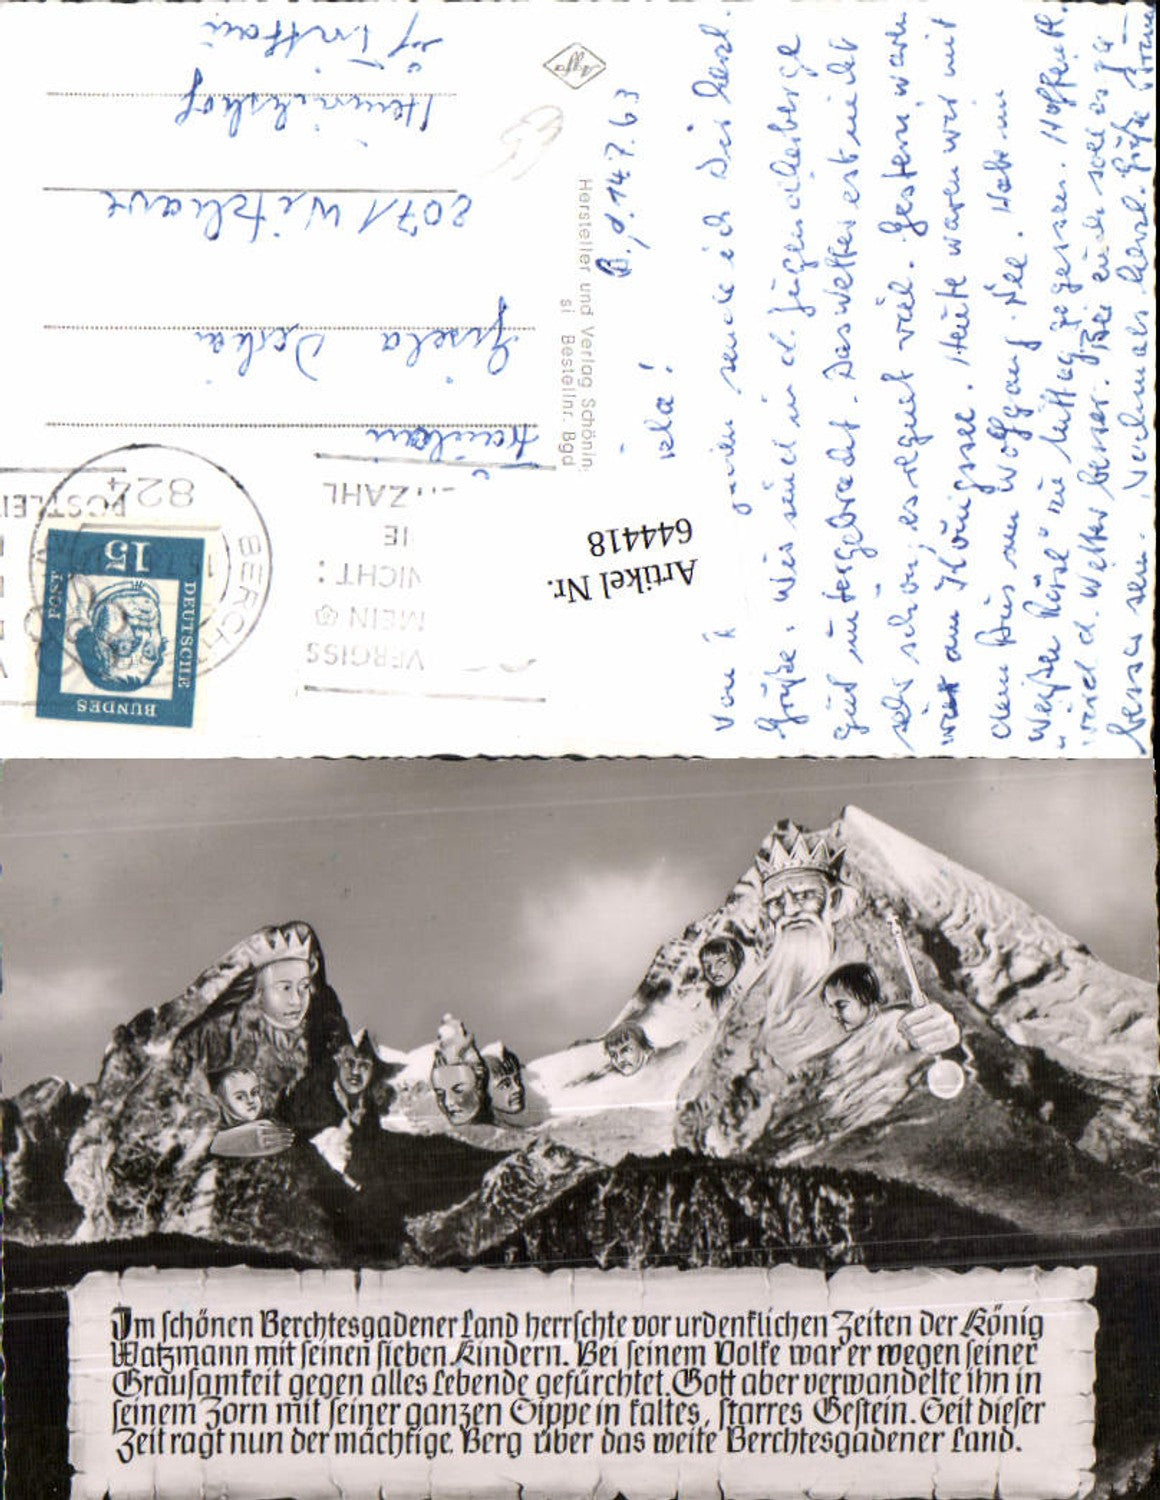 B., d. 14.7.63
Von
sende ich Dir herzl.
Grüße. Wir sind in d. Jugendherberge
gut untergebracht. Das Wetter ist nicht
sehr schön, es regnet viel. Gestern waren
wir am Königssee. Heute waren wir mit
dem Bus am Wolfgang See. Haben im
"Weißen Rössl" zu Mittag gegessen. Hoffentl.
wird d. Wetter besser. Bei euch soll es ja
besser sein. Nochmals herzl. Grüße
Fräulein
Gisela
2071 Witzhave
Heinrichshof
Hersteller und Verlag Schönin
si Bestellnr. Bgd
Agfa
Artikel Nr.
644418
VERGISS
MEIN
NICHT:
IE
...ZAHL
BERCHT
824
POSTLEI
DEUTSCHE
BUNDES
POST
15
Im schönen Berchtesgadener Land herrschte vor urdenklichen Zeiten der König
Watzmann mit seinen sieben Kindern. Bei seinem Volke war er wegen seiner
Grausamkeit gegen alles Lebende gefürchtet. Gott aber verwandelte ihn in
seinem Zorn mit seiner ganzen Sippe in kaltes, starres Gestein. Seit dieser
Zeit ragt nun der mächtige Berg über das weite Berchtesgadener Land.